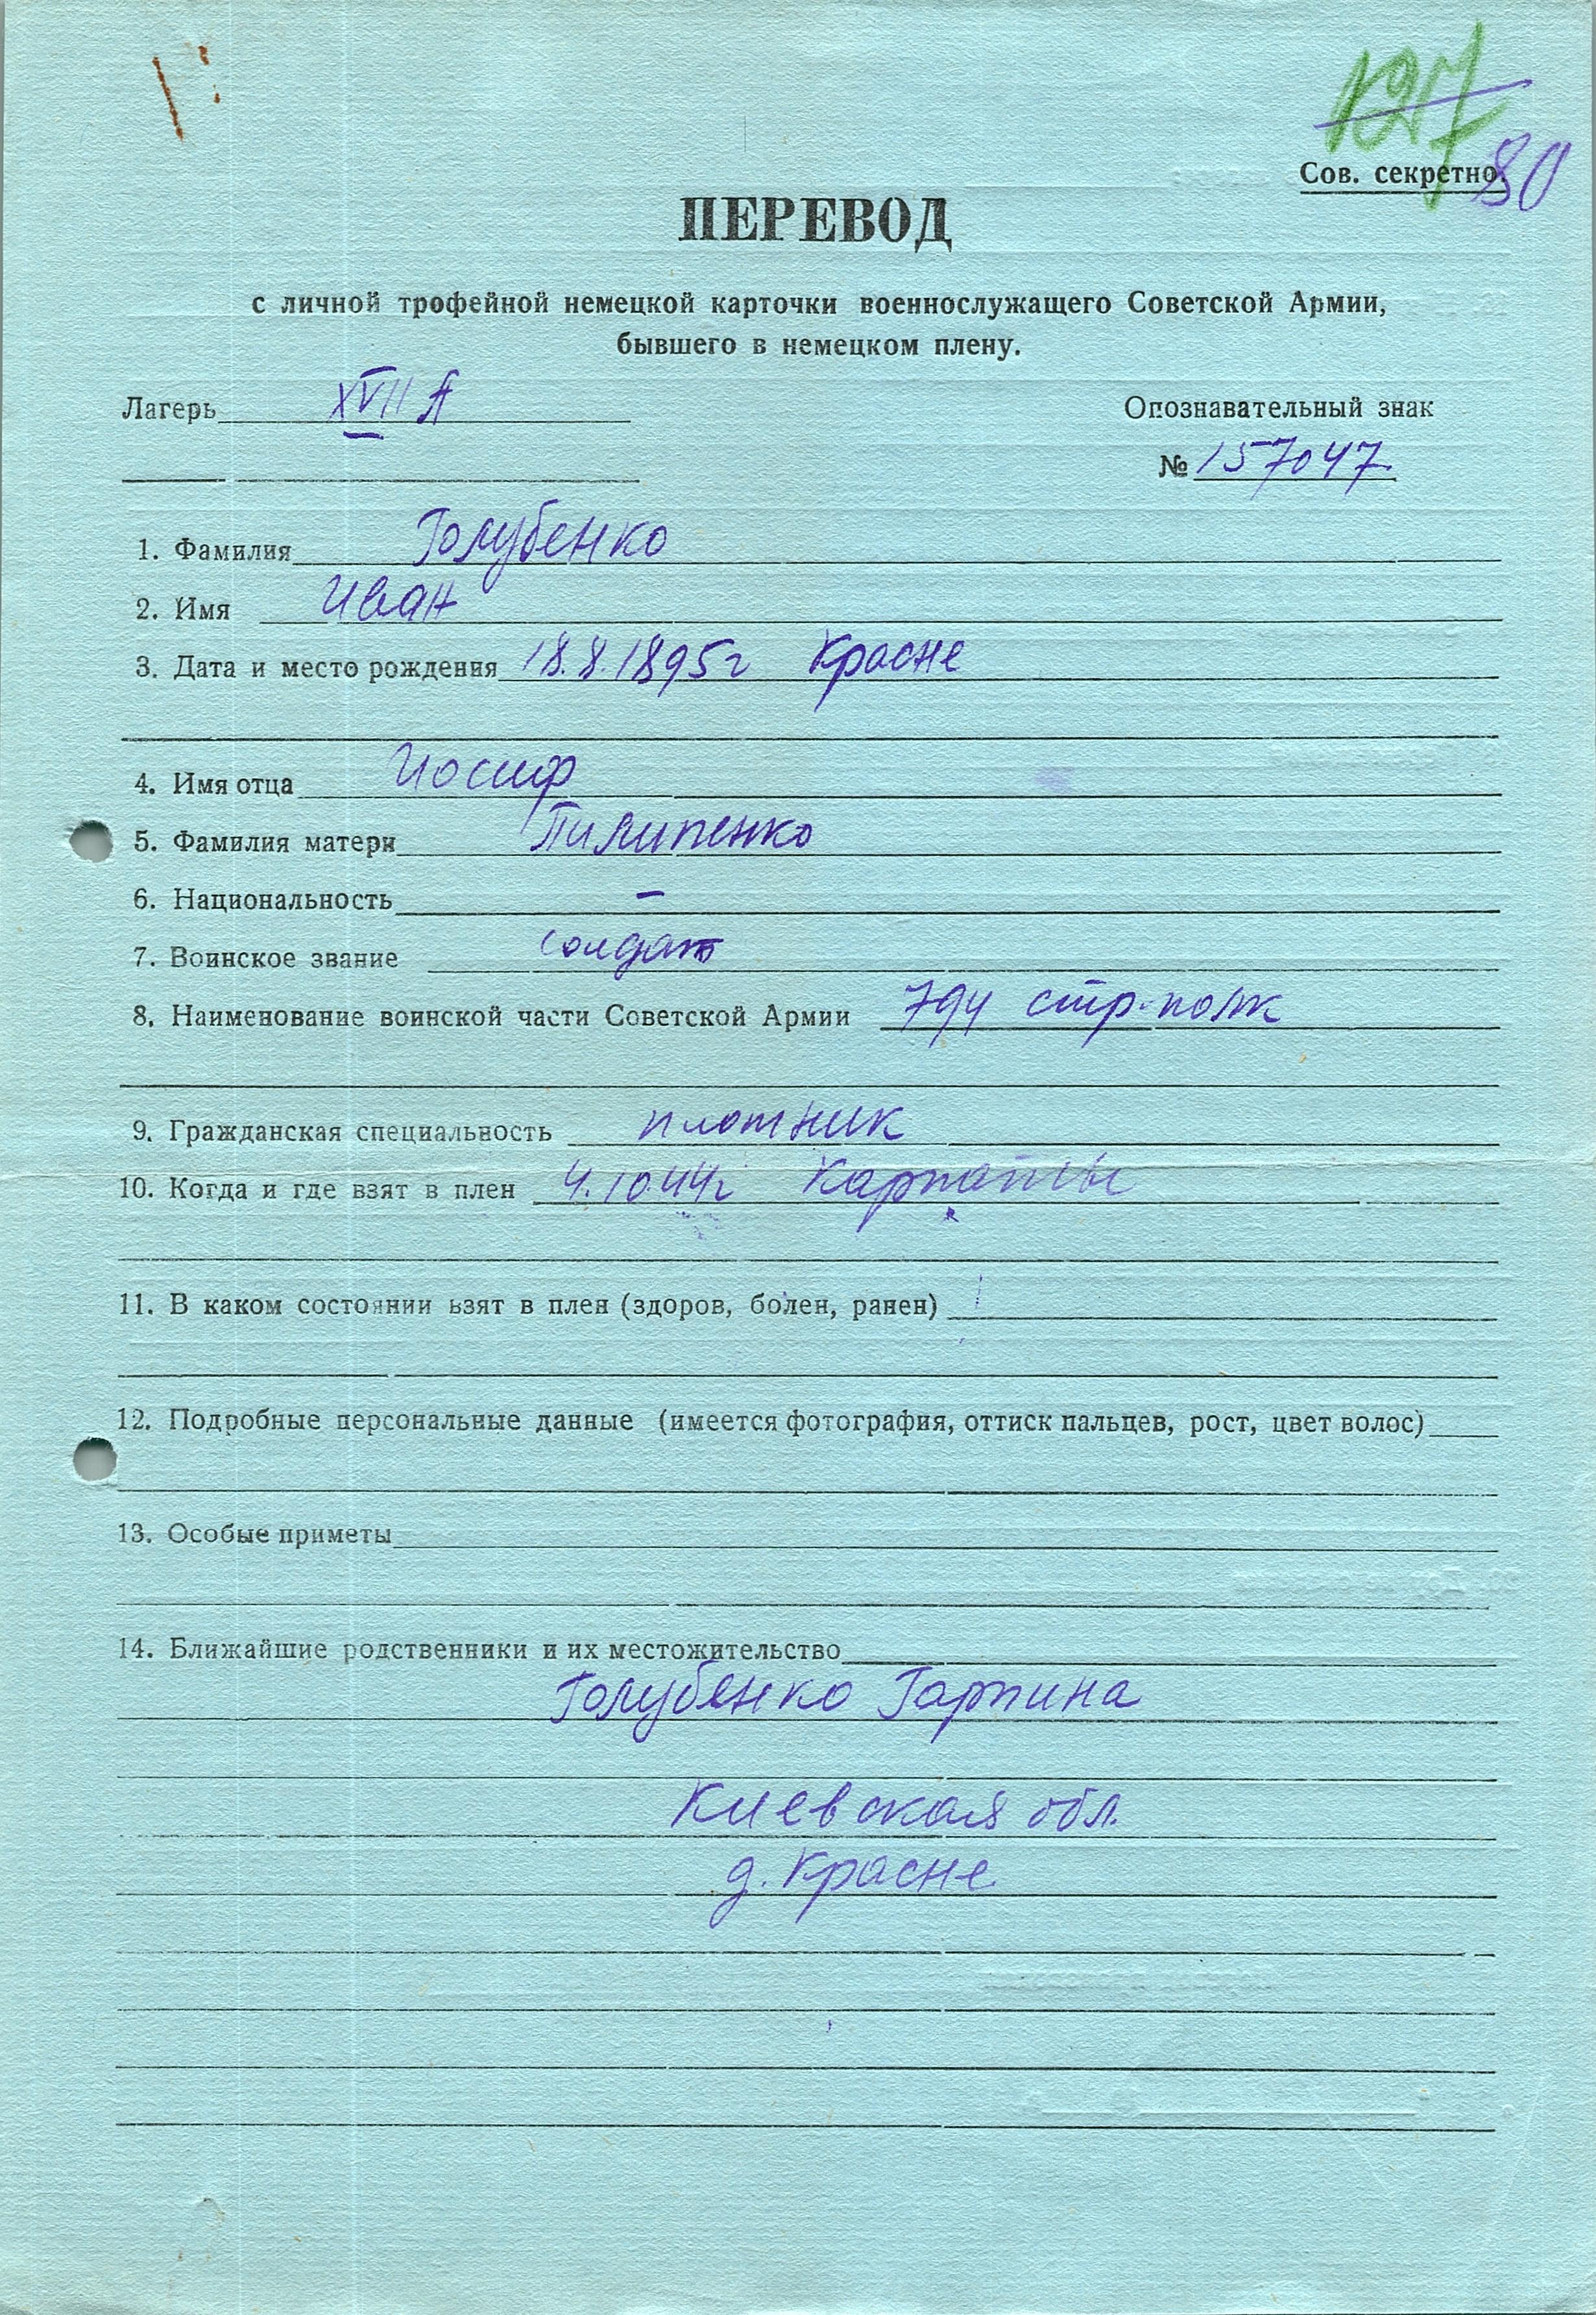 127
80
Сов. секретно.
ПЕРЕВОД
с личной трофейной немецкой карточки военнослужащего Советской Армии,
бывшего в немецком плену.
Лагерь XVII A
Опознавательный знак
№ 157047
1. Фамилия Голубенко
2. Имя Иван
3. Дата и место рождения 18.8.1895г Красне
4. Имя отца Иосиф
5. Фамилия матери Пилипенко
6. Национальность –
7. Воинское звание солдат
8. Наименование воинской части Советской Армии 794 стр. полк
9. Гражданская специальность плотник
10. Когда и где взят в плен 4.10.44г Карпаты
11. В каком состоянии взят в плен (здоров, болен, ранен)
12. Подробные персональные данные (имеется фотография, оттиск пальцев, рост, цвет волос)
13. Особые приметы
14. Ближайшие родственники и их местожительство
Голубенко Гарпина
Киевская обл.
д. Красне